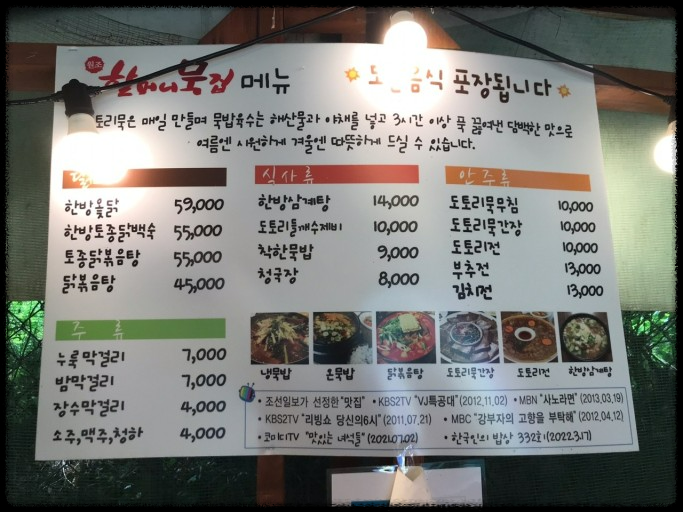 원조 할머니묵집 메뉴
모든음식 포장됩니다
도토리묵은 매일 만들며 묵밥육수는 해산물과 야채를 넣고 3시간 이상 푹 끓여낸 담백한 맛으로
여름엔 시원하게 겨울엔 따뜻하게 드실 수 있습니다.
한방옻닭 59,000
한방토종닭백숙 55,000
토종닭볶음탕 55,000
닭볶음탕 45,000
식사류
한방삼계탕 14,000
도토리들깨수제비 10,000
착한묵밥 9,000
청국장 8,000
안주류
도토리묵무침 10,000
도토리묵간장 10,000
도토리전 10,000
부추전 13,000
김치전 13,000
주류
누룩막걸리 7,000
밤막걸리 7,000
장수막걸리 4,000
소주,맥주,청하 4,000
냉묵밥 온묵밥 닭볶음탕 도토리묵간장 도토리전 한방삼계탕
• 조선일보가 선정한 "맛집" • KBS2TV "VJ특공대" (2012,11,02) • MBN "사노라면" (2013,03,19)
• KBS2TV "리빙쇼 당신의6시" (2011,07,21) • MBC "강부자의 고향을 부탁해" (2012,04,12)
• 코미디TV "맛있는 녀석들" (2021.07.02) • 한국인의 밥상 332회 (2022.3.17)